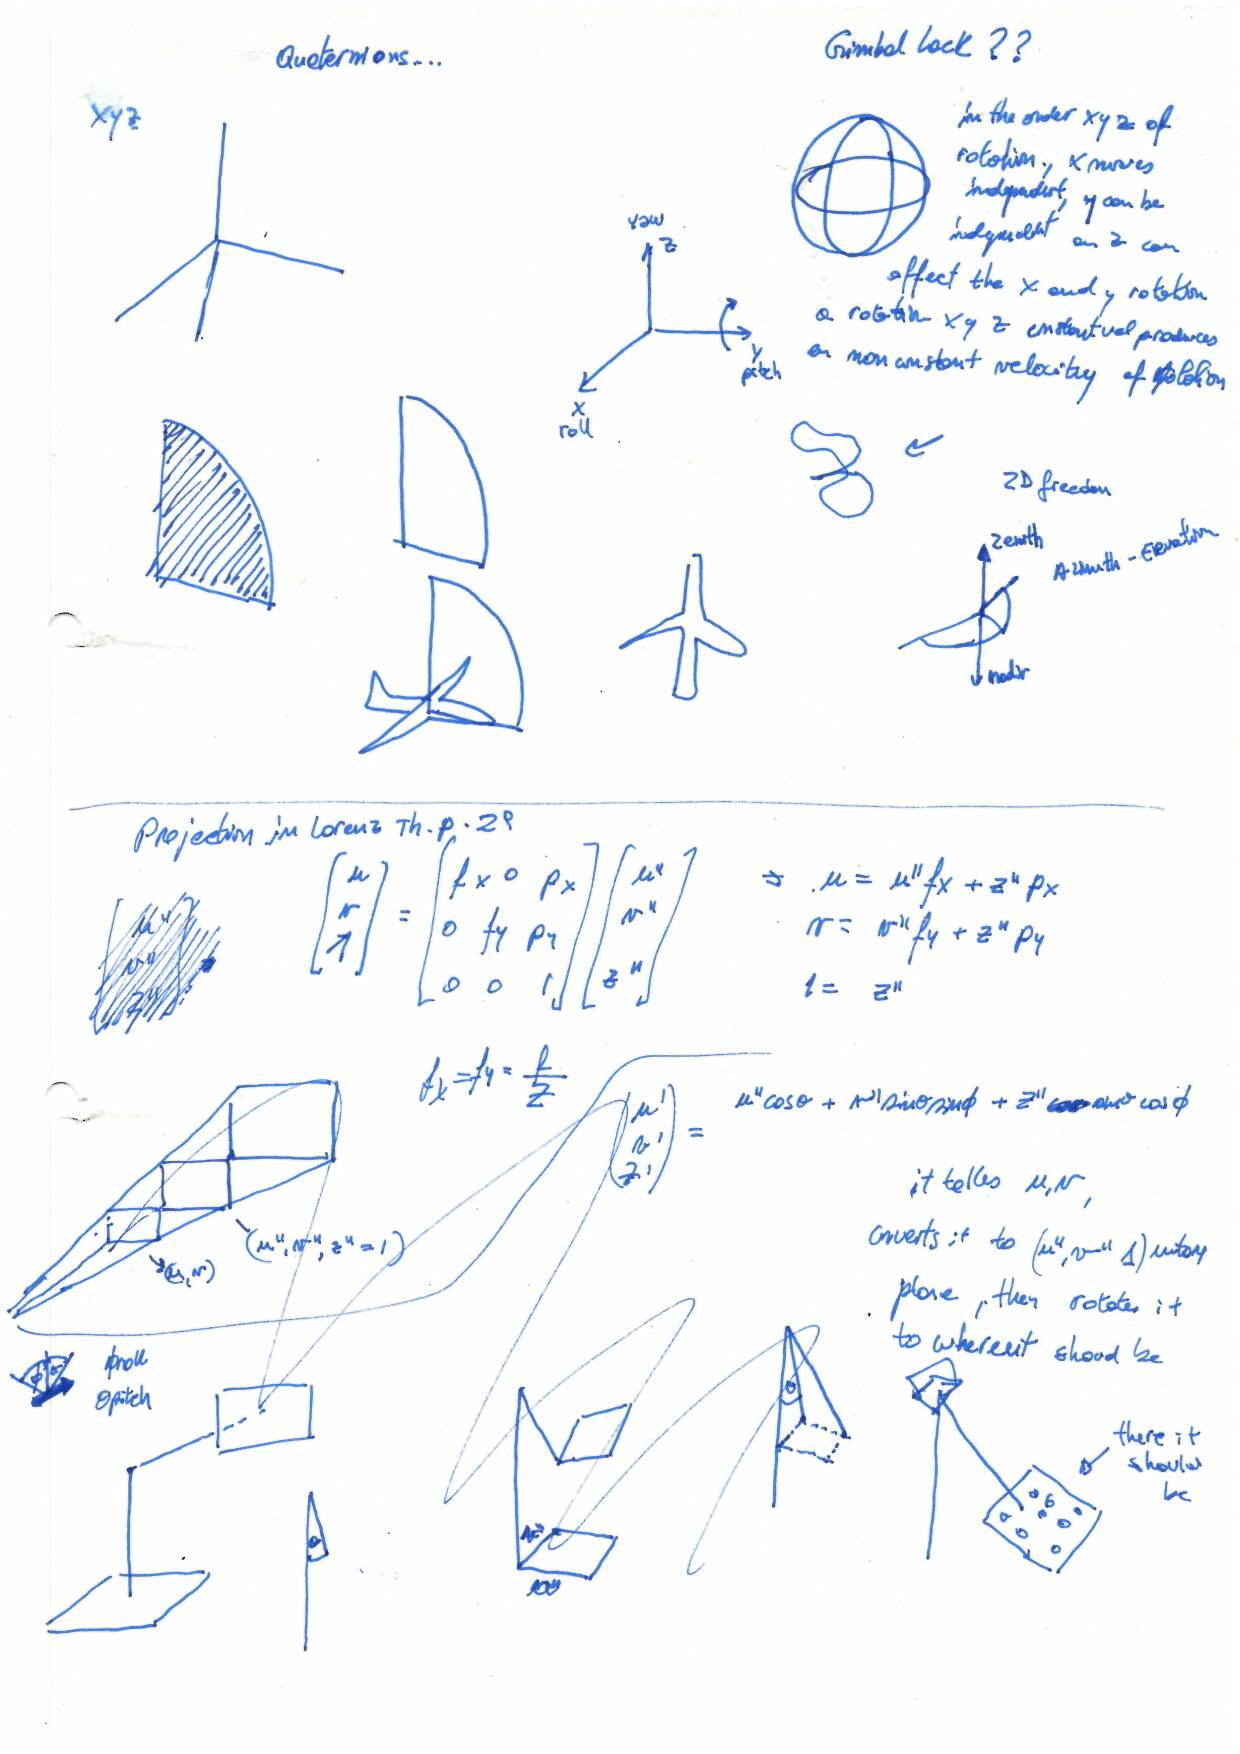 Quaternions...
Gimbal Lock ??
xyz
in the order xyz of
rotation, x moves
independent, y can be
independent an z can
affect the x and y rotation
a rotation xyz produces
an nonconstant velocity of rotation
yaw
z
y
pitch
x
roll
2D freedom
Zenith
Azimuth-
nadir
Projection in Lorenz Th. p.
u
v
1
=
fx 0 px
0 fy py
0 0 1
u"
v"
z"
⇒ u = u" fx + z" px
v = v" fy + z" py
1 = z"
u"
v"
z"
fx = fy = f/Z
u'
v'
z'
=
u" cosθ + v" sinθ sinϕ + z" sinθ cosϕ
(u", v", z" = 1)
(u, v)
it takes u, v,
converts it to (u", v" 1)
plane, then rotates it
to where it should be
ϕ θ
ϕ roll
θ pitch
θ
θ
there it
should
be